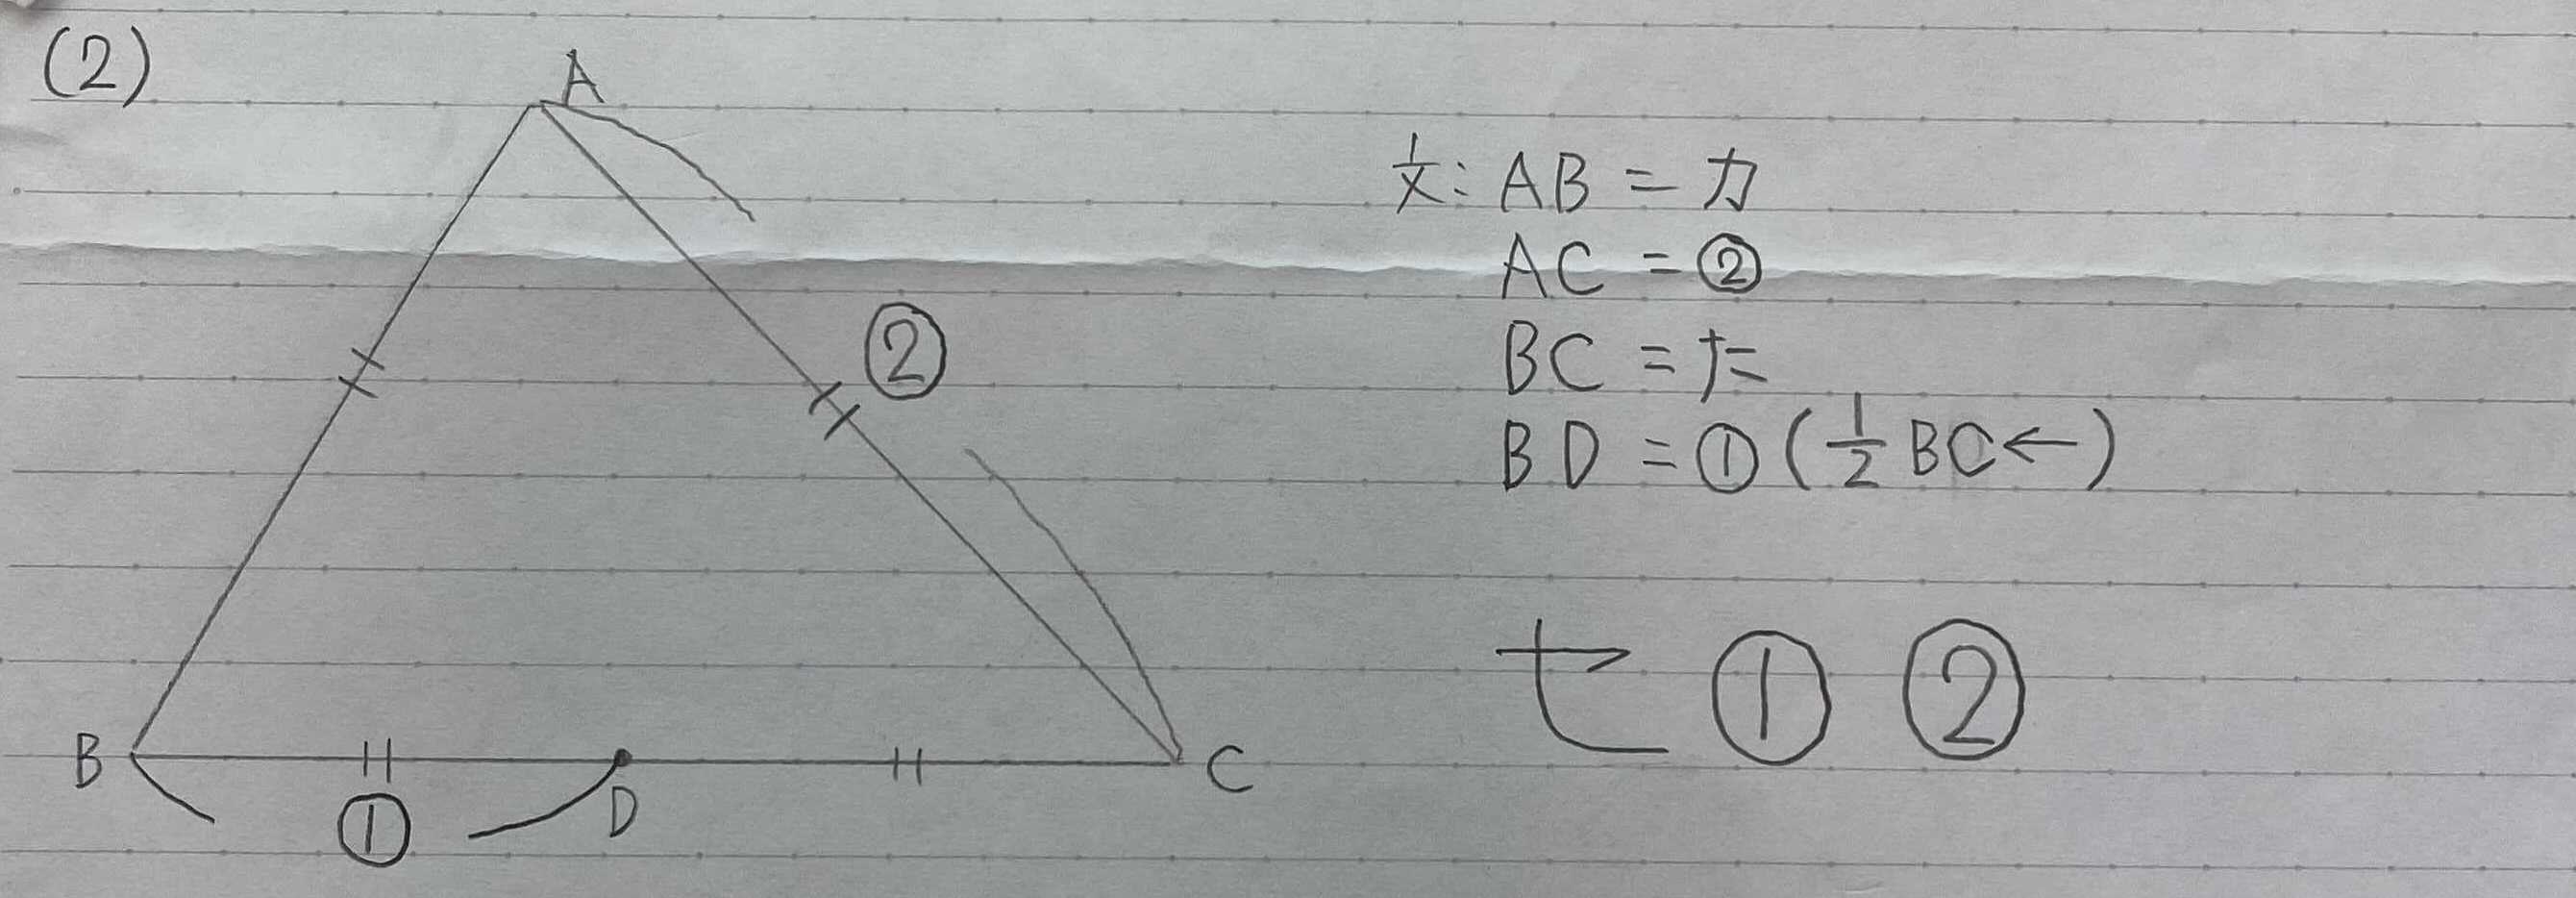 (2)
A
②
B
①
D
C
文: AB = カ
AC = ②
BC = た
BD = ① (1/2 BC←)
七 ① ②